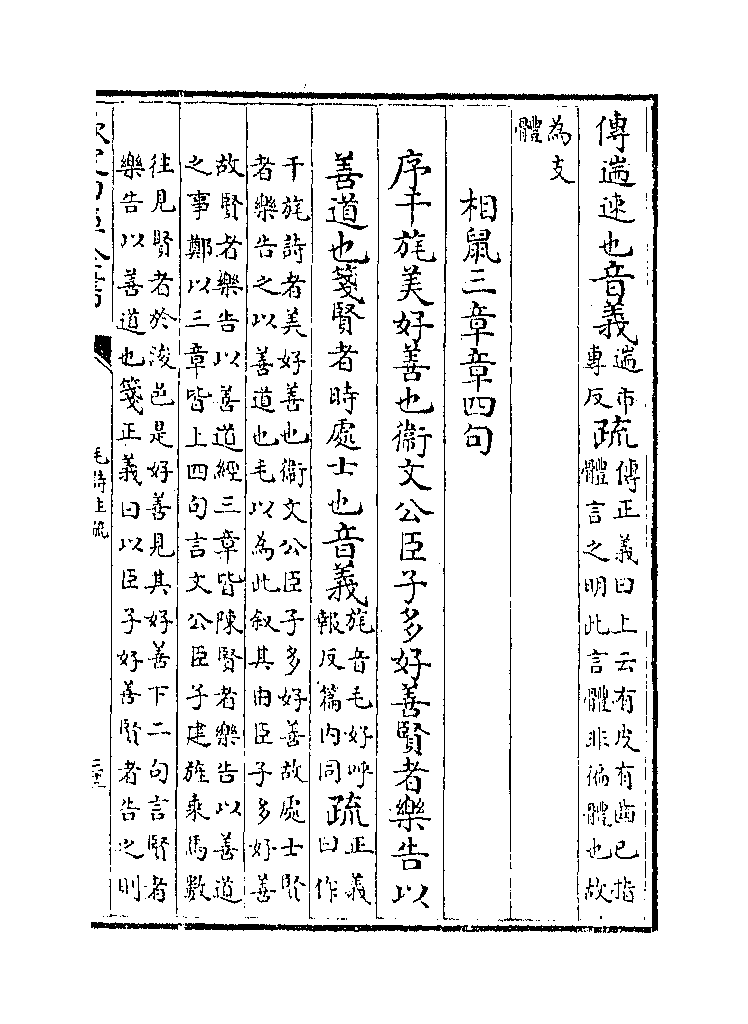 傳遄速也音義遄市專反疏傳正義曰上云有皮有齒已指體言之明此言體非徧體也故
為支體
相鼠三章章四句
序干旄美好善也衞文公臣子多好善賢者樂告以
善道也箋賢者時處士也音義旄音毛好呼報反篇内同疏正義曰作
干旄詩者美好善也衞文公臣子多好善故處士賢者樂告之以善道也毛以為此叙其由臣子多好善
故賢者樂告以善道經三章皆陳賢者樂告以善道之事鄭以三章皆上四句言文公臣子建旌乘馬數
往見賢者於浚邑是好善見其好善下二句言賢者樂告以善道也箋正義曰以臣子好善賢者告之則
毛詩注疏